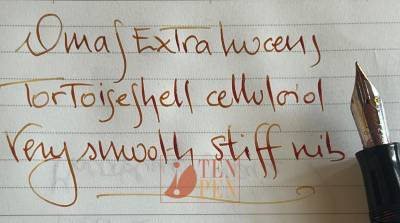 Omas Extra Lucens
Tortoiseshell celluloid
Very smooth stiff nib
TEN
PEN